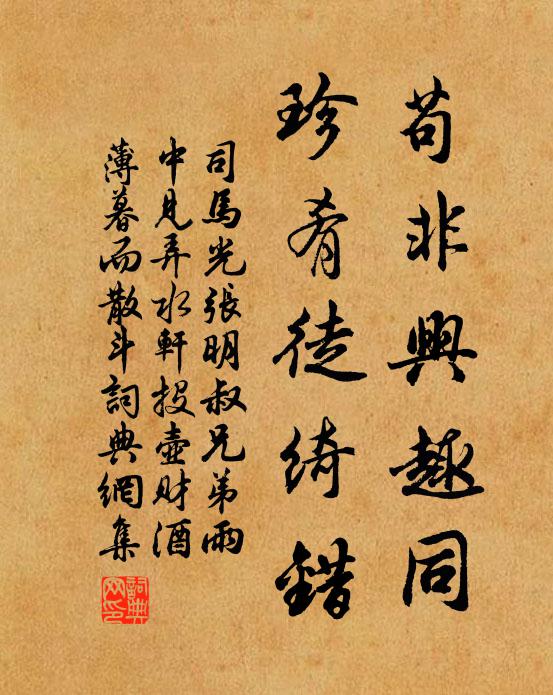 苟非興趣同
珍肴徒綺錯
司馬光張明叔兄弟雨
中見弄水軒投壺財酒
薄暮而散斗詞典網集
詞典網印